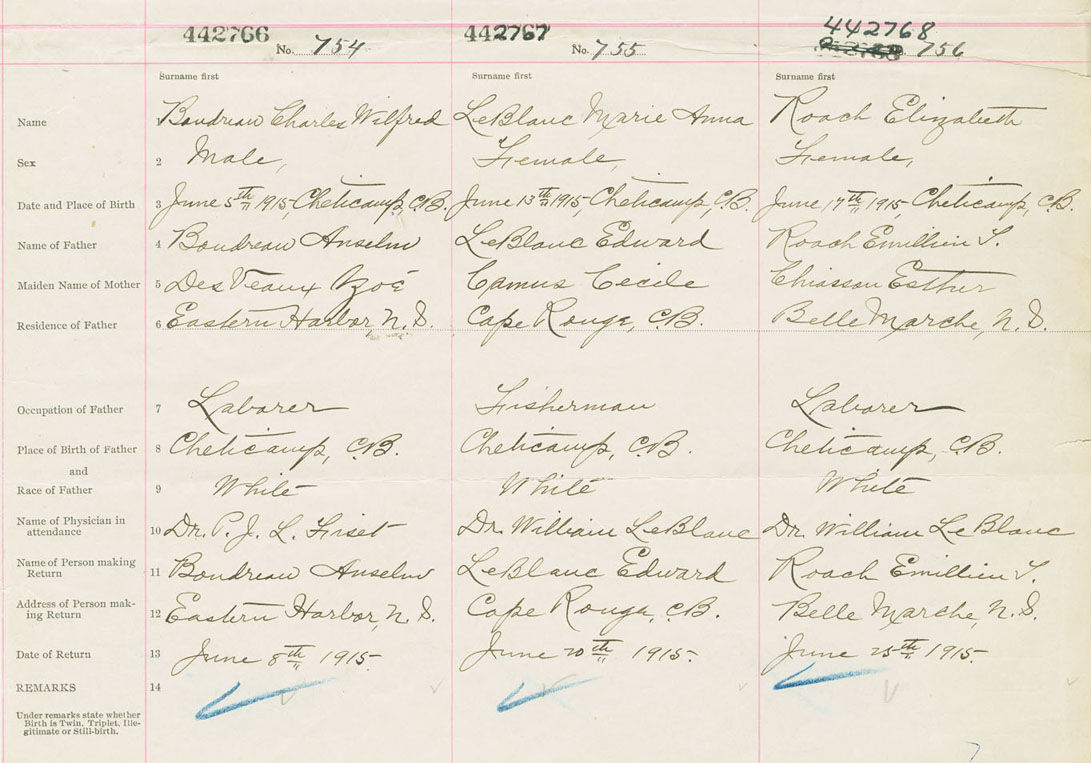 442766 442767 442768
No. 754 No. 755 756
Surname first Surname first Surname first
Name 1 Boudreau Charles Wilfred LeBlanc Marie Anna Roach Elizabeth
Sex 2 Male, Female, Female,
Date and Place of Birth 3 June 5th 1915, Cheticamp, C.B. June 13th 1915, Cheticamp, C.B. June, 17th 1915, Cheticamp, C.B.
Name of Father 4 Boudreau Anselm LeBlanc Edward Roach Emillien S.
Maiden Name of Mother 5 DesVeaux Zoé Camus Cecile Chiasson Esther
Residence of Father 6 Eastern Harbor, N.S. Cape Rouge, C.B. Belle Marche, N.S.
Occupation of Father 7 Laborer Fisherman Laborer
Place of Birth of Father 8 Cheticamp, C.B. Cheticamp, C.B. Cheticamp, C.B.
and
Race of Father 9 White White White
Name of Physician in
attendance 10 Dr. P. J. L. Fiset Dr. William LeBlanc Dr. William LeBlanc
Name of Person making
Return 11 Boudreau Anselm LeBlanc Edward Roach Emillien S.
Address of Person mak-
ing Return 12 Eastern Harbor, N.S. Cape Rouge, C.B. Belle Marche, N.S.
Date of Return 13 June 8th 1915. June 20th 1915. June 25th 1915.
REMARKS 14
Under remarks state whether
Birth is Twin, Triplet, Ille-
gitimate or Still-birth.